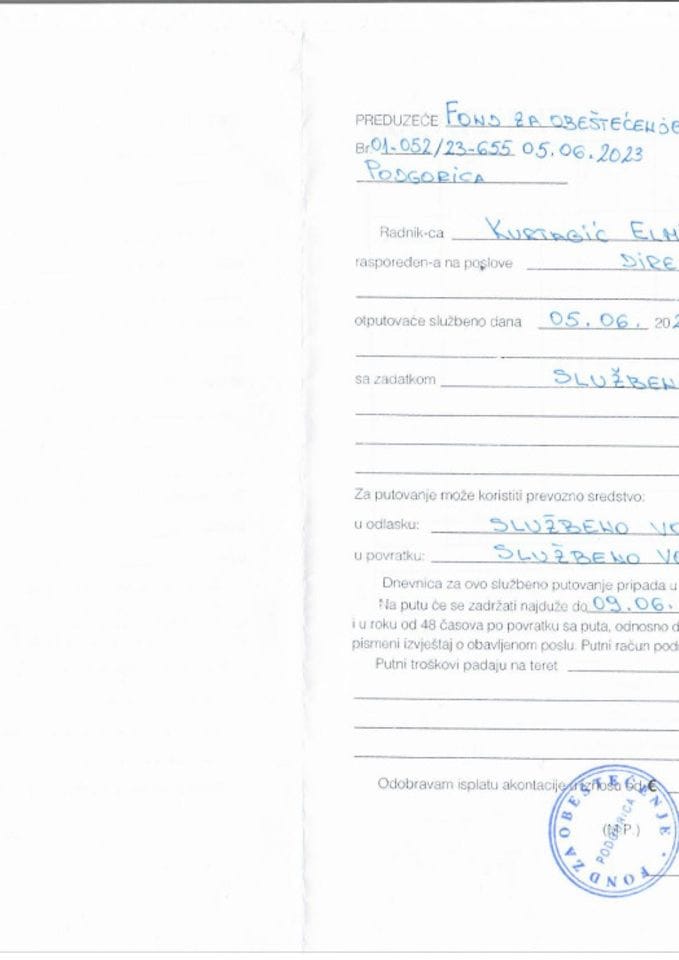 PREDUZEĆE FOND ZA OBEŠTEĆENJE
Br 01-052/23-655 05.06.2023
PODGORICA
Radnik-ca KURTAGIĆ ELM
raspoređen-a na poslove DIRE
otputovaće službeno dana 05.06. 202
sa zadatkom SLUŽBEN
Za putovanje može koristiti prevozno sredstvo:
u odlasku: SLUŽBENO VO
u povratku: SLUŽBENO VO
Dnevnica za ovo službeno putovanje pripada u
Na putu će se zadržati najduže do 09.06.
i u roku od 48 časova po povratku sa puta, odnosno d
pismeni izvještaj o obavljenom poslu. Putni račun pod
Putni troškovi padaju na teret
Odobravam isplatu akontacije u iznosu od €
(M.P.)
FOND ZA OBEŠTEĆENJE
PODGORICA